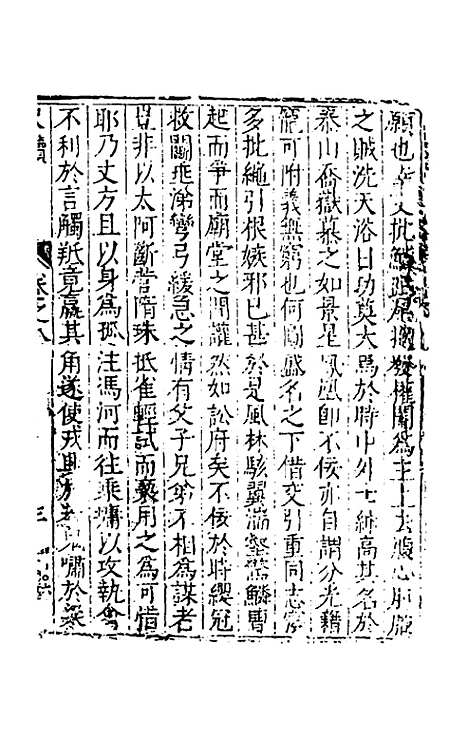 願也丈批鱗為主上去腹心肘腋
之賊洗天浴日功莫大焉於時中外士紳高其名於
泰山喬嶽慕之如景星鳳凰即不佞亦自謂分光藉
寵可附義無窮也何圖盛名之下借交引重同志
多批繩引根嫉邪已甚於是風林駭翼湍壑驚鱗曹
起而爭而廟堂之間讙然如訟府矣不佞於時纓冠
救鬬垂涕彎弓緩急之情有父子兄弟不相為謀者
豈非以太阿斷菅隋珠抵雀輕試而褻用之為可惜
耶乃丈方且以身為孤注馮河而往乘墉以攻執會
不利於言觸羝竟羸其角遂使戎嘯於梁
尺牘
卷之八
三